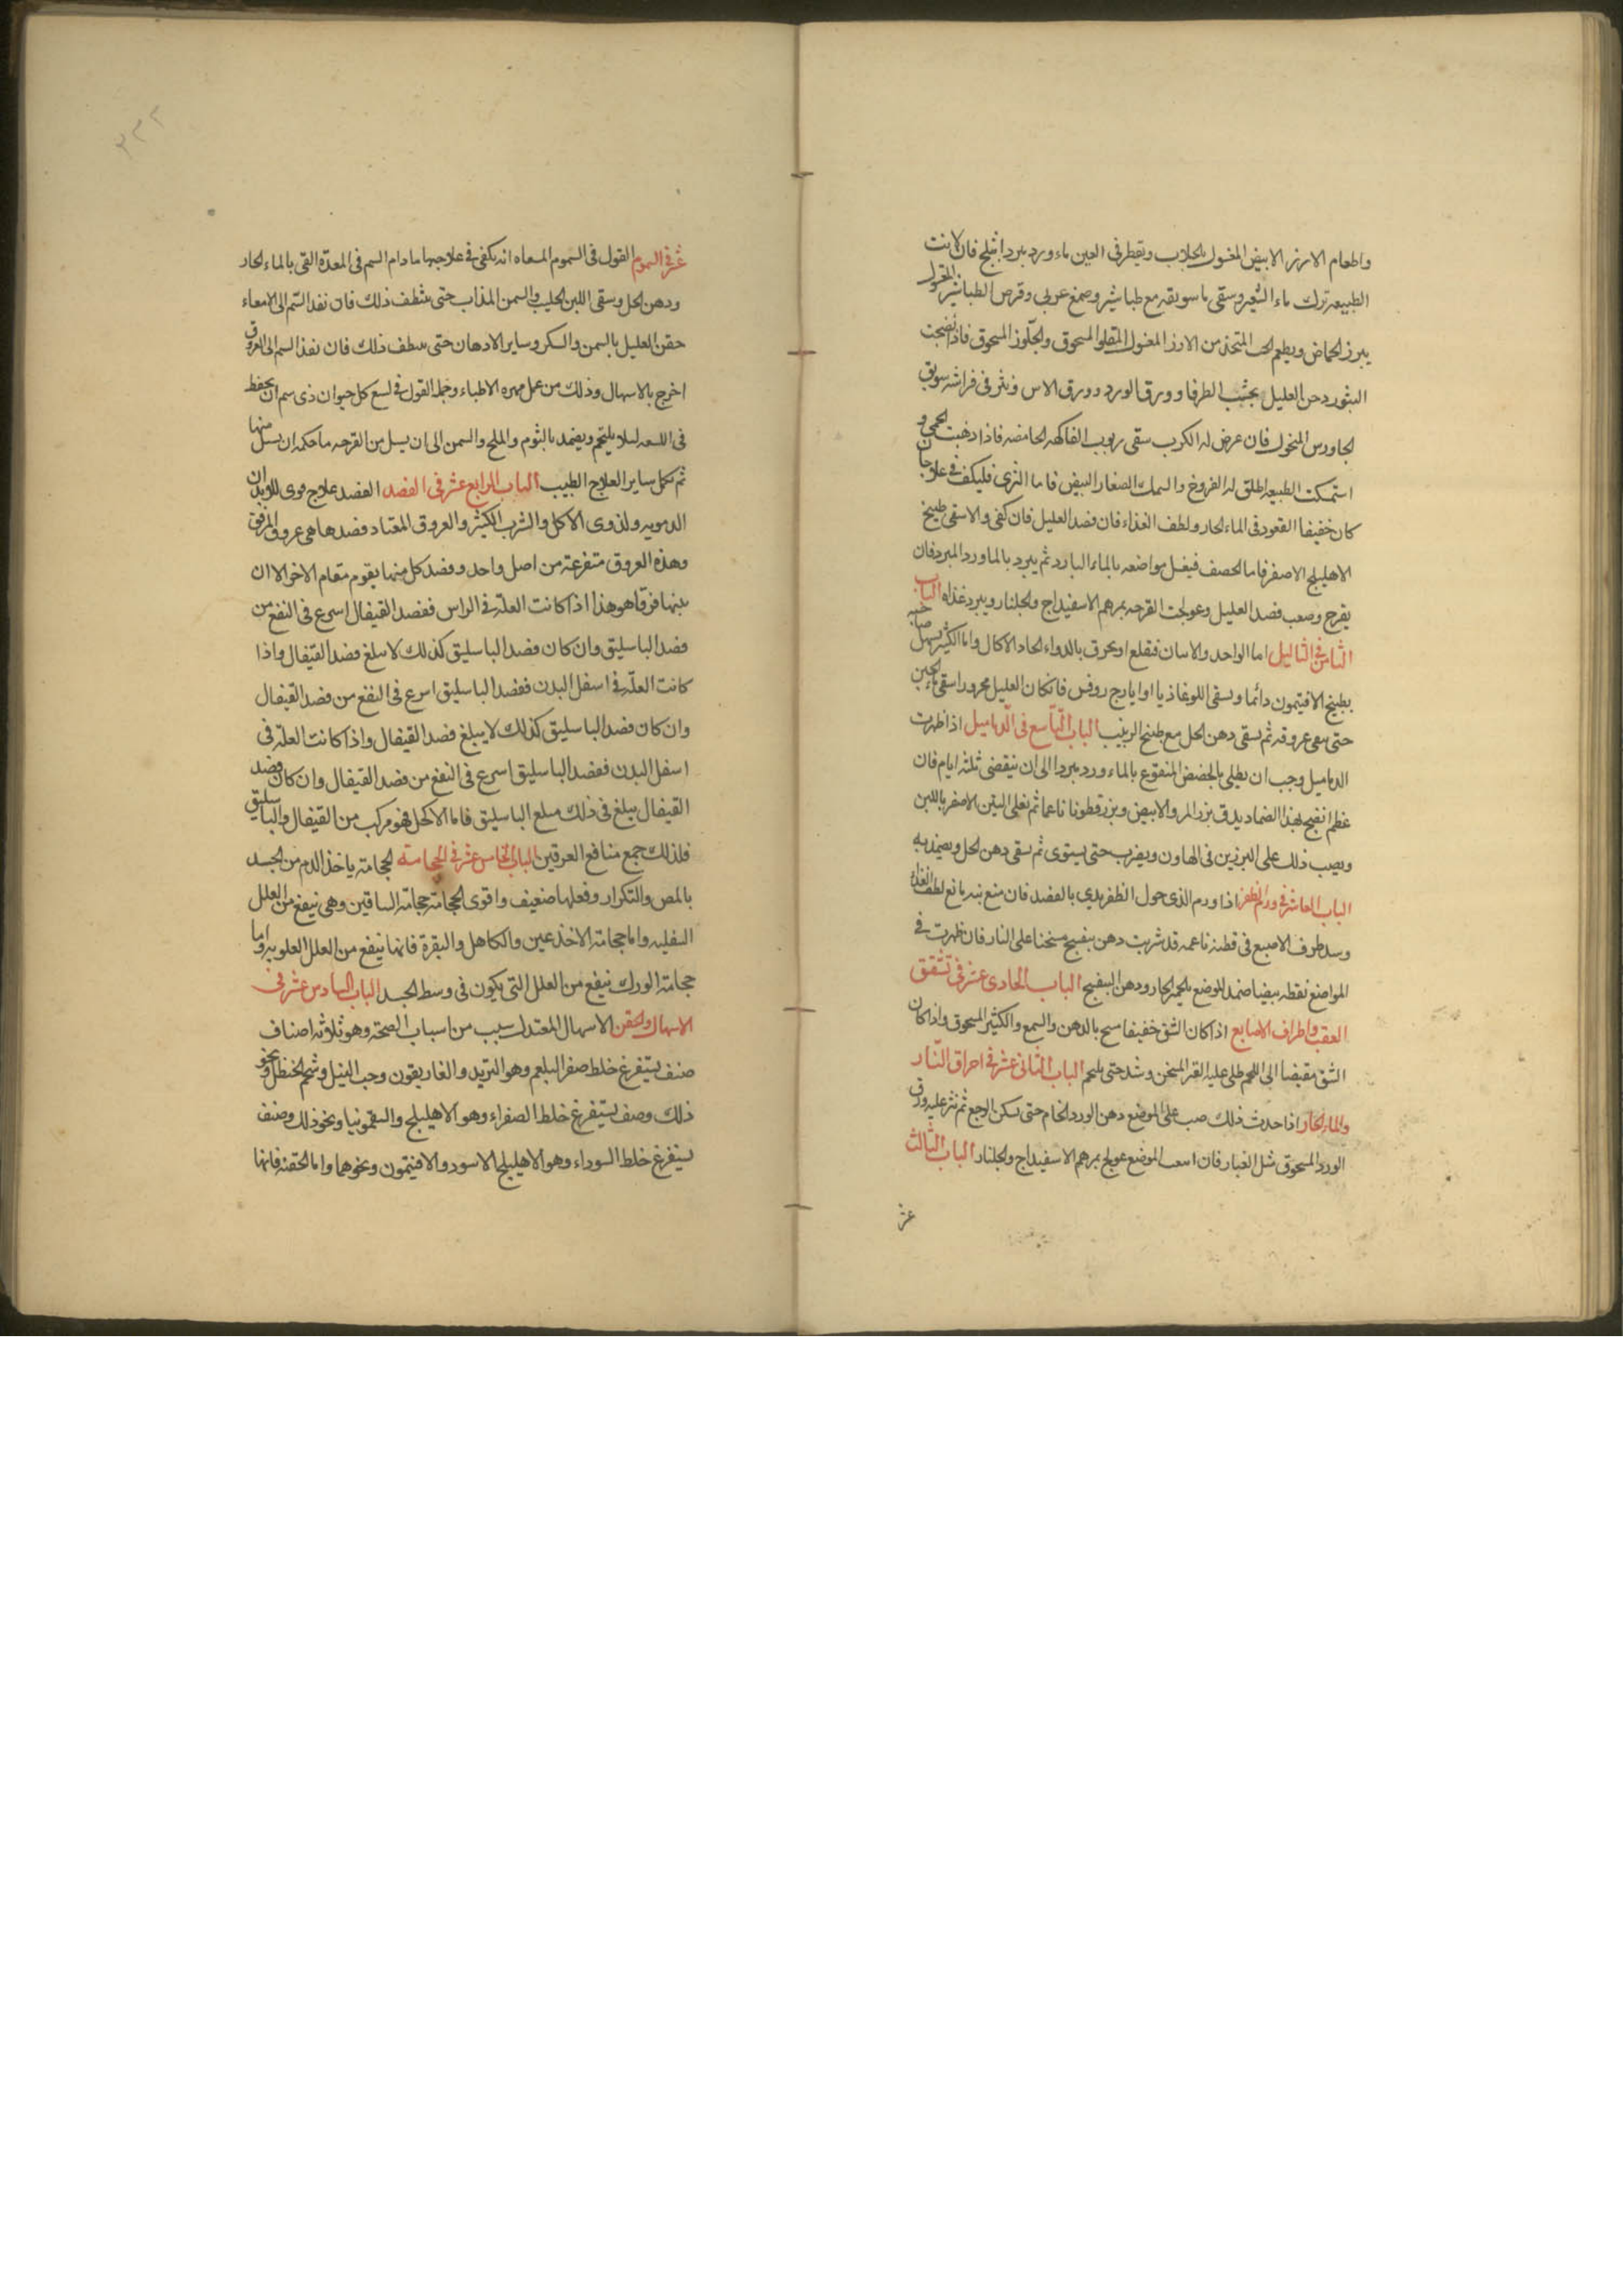 واطعام الارز الابيض المغسول بالجلاب ويقطر فى العين ماء ورد مبردا بثلج فان لانت
الطبيعه ترك ماء الشعير وسقى ماء سويقه مع طباشير وصمغ عربى وقرص الطباشير المعمول
ببزر الحماض ويطعم الخبز المتخذ من الارز المغسول المقلو المسحوق والجلوز المسحوق فاذا نضجت
البثور دخن العليل بخشب الطرفا وورق الورد وورق الاس ونثر فى فراشه سويق
الجاورس المنخول فان عرض له الكرب سقى ربوب الفاكهه الحامضه فاذا ذهبت الحمى و
استمسكت الطبيعه اطلق له الفروخ والسمك الصغار البيض فاما الشرى فليكف فى علاجه ان
كان خفيفا القعود فى الماء الحار ولطف الغذاء فان فصد العليل فان كفى والا سقى طبيخ
الاهليلج الاصفر فاما الحصف فيغسل مواضعه بالماء البارد ثم يبرد بالماورد المبرد فان
يقرح وصعب فصد العليل وعولجت القرحه بمرهم الاسفيداج والجلنار ويبرد غذاه الباب
الثامن فى الثاليل اما الواحد والاسان فتقلع او يحرق بالدواء الحاد الاكال واما الكثير يسهل صاحبه
بطبيخ الافتيمون دائما ويسقى اللوغاذيا او ايارج روفس فان كان العليل محرورا سقى ماء الجبن
حتى سعى عروقه ثم يسقى دهن الحل مع طبيخ الزبيب الباب التاسع فى الدماميل اذا ظهرت
الدماميل وجب ان يطلى بالحضض المنقوع بالماء ورد مبردا الى ان ينقضى ثلثه ايام فان
عظم انضج بهذا الضماد يدق بزر المرو الابيض وبزر قطونا ناعما ثم يغلى التين الاصفر باللبن
ويصب ذلك على البزرين فى الهاون ويضرب حتى يستوى ثم يسقى دهن الحل ويضمد به
الباب العاشر فى ورم الظفر اذا ورم الذى حول الظفر بدى بالفصد فان منع منه مانع لطف الغذاء
وسد طرف الاصبع فى قطنه ناعمه قد شربت دهن بنفسج مسخنا على النار فان ظهرت فى
المواضع نقطه بيضا ضمد الموضع بالخمير الحار ودهن البنفسج الباب الحادى عشر فى تشقق
العقب واطراف الاصابع اذا كان الشق خفيفا مسح بالدهن والشمع والكثير المسحوق واذا كان
الشق مفيضا الى اللحم طلى عليه القير المسخن وشد حتى يلحم الباب الثانى عشر فى احراق النار
والماء الحار اذا حدث ذلك صب على الموضع دهن الورد الخام حتى يسكن الوجع ثم نثر عليه ورق
الورد المسحوق مثل الغبار فان اصعب الموضع عولج بمرهم الاسفيداج والجلنار الباب الثالث
عشر
عشر فى السموم القول فى السموم المسعاه انه يكفى فى علاجها ما دام السم فى المعدة القى بالماء الحار
ودهن الحل وسقى اللبن الحليب والسمن المذاب حتى ينظف ذلك فان نفذ السم الى الامعاء
حقن العليل بالسمن والسكر وساير الادهان حتى ينظف ذلك فان نفذ السم الى العروق
اخرج بالاسهال وذلك من عمل مهره الاطباء وجمله القول فى لسع كل حيوان ذى سم ان يحفظ
فى اللسعه ليلا يلتحم ويضمد بالثوم والملح والسمن الى ان يسل من القرحه ما حكمه ان يسل منها
ثم تكمل ساير العلاج الطبيب الباب الرابع عشر فى الفصد الفصد علاج قوى للابدان
الدمويه ولذوى الاكل والشرب الكثير والعروق المعتاد فصدها هى عروق المرفق
وهذه العروق متفرعة من اصل واحد وفصد كل منها يقوم مقام الاخر الا ان
بينها فرقا هو هذا اذا كانت العلة فى الراس ففصد القيفال اسرع فى النفع من
فصد الباسليق وان كان فصد الباسليق كذلك لا سلغ فصد القيفال واذا
كانت العلة فى اسفل البدن ففصد الباسليق اسرع فى النفع من فصد القيفال
وان كان فصد الباسليق كذلك لا يبلغ فصد القيفال واذا كانت العلة فى
اسفل البدن ففصد الباسليق اسرع فى النفع من فصد القيفال وان كان فصد
القيفال يبلغ فى ذلك مبلغ الباسليق فاما الاكحل فهو مركب من القيفال والباسليق
فلذلك جمع منافع العرقين الباب الخامس عشر فى الحجامة الحجامة ياخذ الدم من الجسد
بالمص والتكرار وفعلها ضعيف واقوى الحجامة حجامة الساقين وهى تنفع من العلل
السفليه واما حجامة الاخدعين والكاهل والنقرة فانها ينفع من العلل العلويه واما
حجامة الورك ينفع من العلل التى يكون فى وسط الجسد الباب السادس عشر فى
الاسهال والحقن الاسهال المعتدل سبب من اسباب الصحة وهو ثلاثه اصناف
صنف يستفرغ خلط صفر البلغم وهو التربد والغاريقون وحب النيل وشحم الحنظل ونحو
ذلك وصنف يستفرغ خلط الصفراء وهو الاهليلج والسقمونيا ونحو ذلك وصنف
يستفرغ خلط السوداء وهو الاهليلج الاسود والافتيمون ونحوهما واما الحقنه فانها